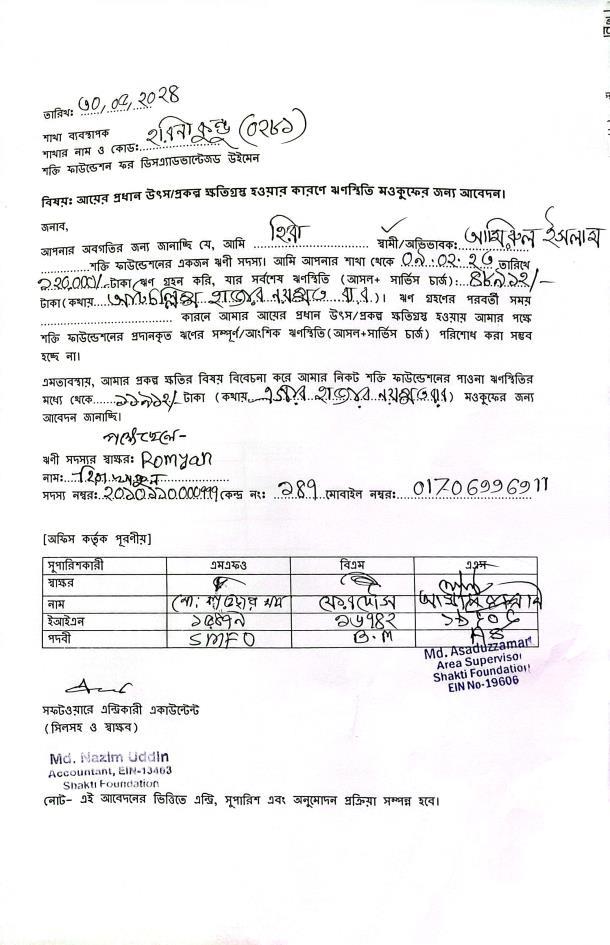 তারিখ: ৩০,০৫,২০২৪
শাখা ব্যবস্থাপক
শাখার নাম ও কোড: হরিনাকুন্ডু (০২৮১)
শক্তি ফাউন্ডেশন ফর ডিসএ্যাডভান্টেজড উইমেন
বিষয়: আয়ের প্রধান উৎস/প্রকল্প ক্ষতিগ্রস্থ হওয়ার কারণে ঋণস্থিতি মওকুফের জন্য আবেদন।
জনাব,
আপনার অবগতির জন্য জানাচ্ছি যে, আমি হিরা স্বামী/অভিভাবক: আমিরুল ইসলাম
শক্তি ফাউন্ডেশনের একজন ঋণী সদস্য। আমি আপনার শাখা থেকে ০৯.০২.২৩ তারিখে
১২০,০০০/- টাকা ঋণ গ্রহন করি, যার সর্বশেষ ঋণস্থিতি (আসল+ সার্ভিস চার্জ): ৪৮৯১২/-
টাকা (কথায় আটচল্লিশ হাজার নয়শত বার)। ঋণ গ্রহণের পরবর্তী সময়
কারনে আমার আয়ের প্রধান উৎস/প্রকল্প ক্ষতিগ্রস্থ হওয়ায় আমার পক্ষে
শক্তি ফাউন্ডেশনের প্রদানকৃত ঋণের সম্পূর্ণ/আংশিক ঋণস্থিতি (আসল+সার্ভিস চার্জ) পরিশোধ করা সম্ভব
হচ্ছে না।
এমতাবস্থায়, আমার প্রকল্প ক্ষতির বিষয় বিবেচনা করে আমার নিকট শক্তি ফাউন্ডেশনের পাওনা ঋণস্থিতির
মধ্যে থেকে ১১৯১২/ টাকা (কথায় এগার হাজার নয়শতবার) মওকুফের জন্য
আবেদন জানাচ্ছি।
পক্ষে ছেলে-
ঋণী সদস্যর স্বাক্ষর: Romyan
নাম:
সদস্য নম্বর: কেন্দ্র নং: ১৪৭ মোবাইল নম্বর: 01706996977
[অফিস কর্তৃক পূরণীয়]
সুপারিশকারী এমএফও বিএম এএস
স্বাক্ষর
নাম ফেরদৌস
ইআইএন ১৬৭৪২
পদবী SMFO B.M AS
Md. Asaduzzaman
Area Supervisor
Shakti Foundation
EIN No-19606
সফটওয়ারে এন্ট্রিকারী একাউন্টেন্ট
(সিলসহ ও স্বাক্ষর)
Md. Nazim Uddin
Accountant, EIN-13463
Shakti Foundation
নোট- এই আবেদনের ভিত্তিতে এন্ট্রি, সুপারিশ এবং অনুমোদন প্রক্রিয়া সম্পন্ন হবে।